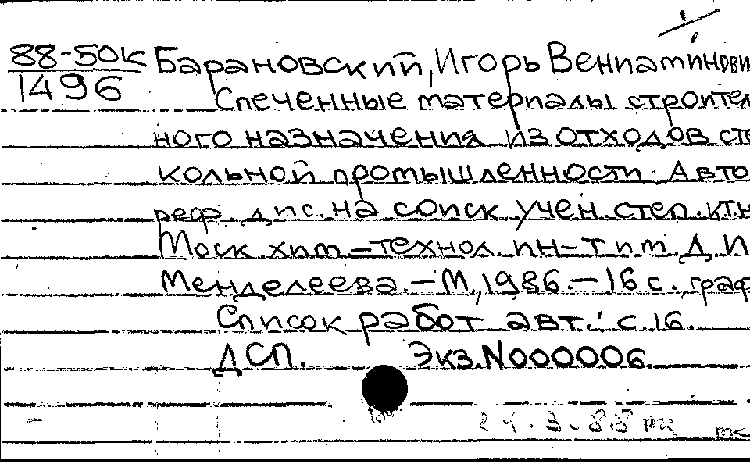 88-50к Барановский, Игорь Вениаминови
1496
Спеченные материалы строител
ного назначения из отходов сте
кольной промышленности. Авто
реф. дис. на соиск учен. степ. к.т.н
Моск хим-технол. ин-т им. Д. И
Менделеева. – М., 1986. – 16 с., граф
Список работ авт.: с. 16.
ДСП. Экз. N000006.